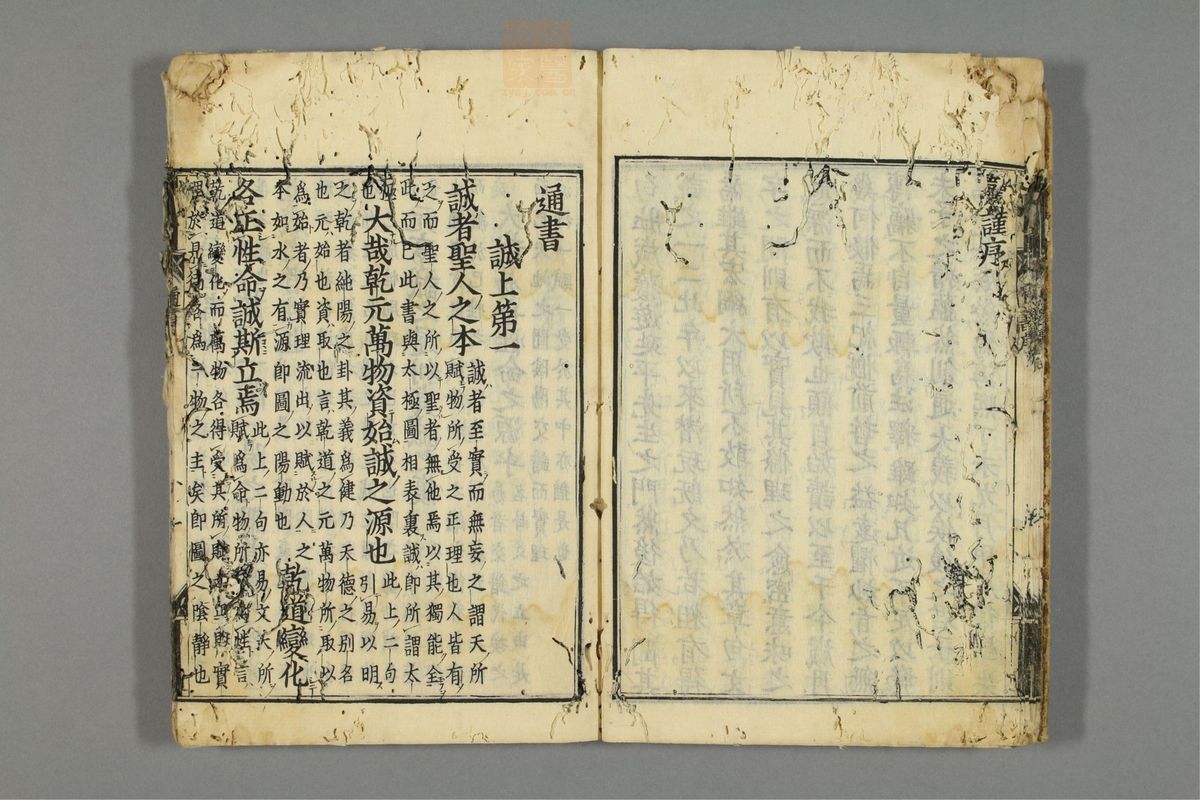 謹序
通書
誠上第一
誠者聖人之本
誠者至實而無妄之謂天所
賦物所受之正理也人皆有
之而聖人之所以聖者無他焉以其獨能全
此而已此書與太極圖相表裏誠即所謂太
極也
大哉乾元萬物資始誠之源也
此上二句
引易以明
之乾者純陽之卦其義爲健乃天德之別名
也元始也資取也言乾道之元萬物所取以
爲始者乃實理流出以賦於人之
本如水之有源即圖之陽動也
乾道變化
各正性命誠斯立焉
此上二句亦易文天所
賦爲命物所
乾道變化而萬物各得受其所
於是 各爲一物之主矣即圖之陰靜也